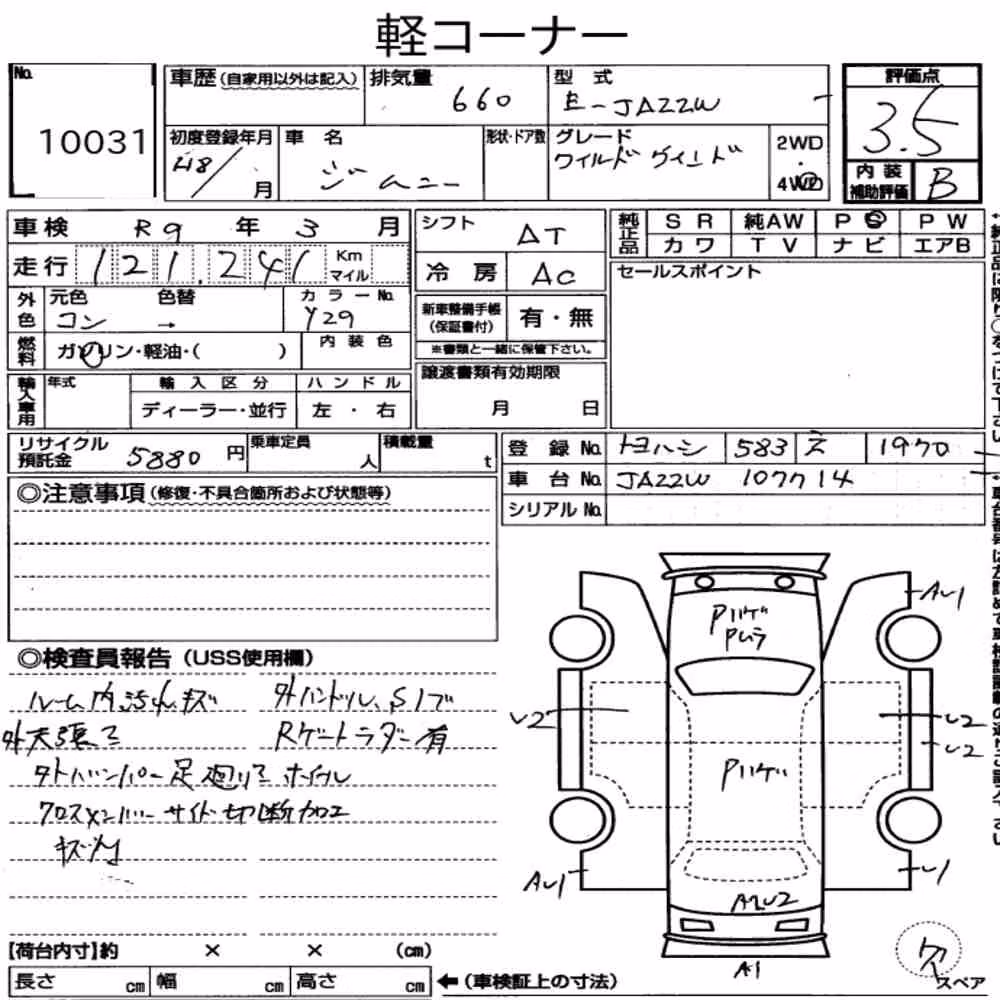 軽コーナー
No.
10031
車歴(自家用以外は記入)
排気量
660
型式
E-JA22W
評価点
3.5
初度登録年月
H8/ 月
車名
ジムニー
形状・ドア数
グレード
ワイルドウインド
2WD
・
4WD
内装
補助評価
B
車検 R9年3月
走行 121,241 Km
マイル
外色
元色
コン
色替
→
カラーNo.
Y29
燃料
ガソリン・軽油・( )
内装色
輸入車用
年式
輸入区分
ディーラー・並行
ハンドル
左・右
シフト
AT
冷房
AC
新車整備手帳
(保証書付)
有・無
※書類と一緒に保管下さい。
譲渡書類有効期限
月 日
純正品
SR 純AW PS PW
カワ TV ナビ エアB
セールスポイント
リサイクル
預託金
5880円
乗車定員
人
積載量
t
登録No. トヨハシ 583 え 1970
車台No. JA22W 107714
シリアルNo.
◎注意事項(修復・不具合箇所および状態等)
◎検査員報告(USS使用欄)
ルーム内汚れキズ
外ハンドル、Sノブ
外天張り
Rゲートラダー有
外バンパー足廻り ホイル
クロスメンバーサイド切断加工
キズ凹
Pハゲ
Pムラ
AU1
U2
U2
U2
Pハゲ
AU1
U1
A2U2
A1
欠
スペア
【荷台内寸】約 × × (cm)
長さ cm 幅 cm 高さ cm ←(車検証上の寸法)